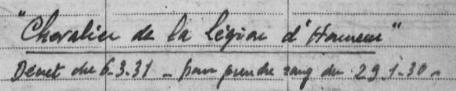 "Chevalier de la Légion d'Honneur"
Décret du 6.3.31 - pour prendre rang du 29.1.30